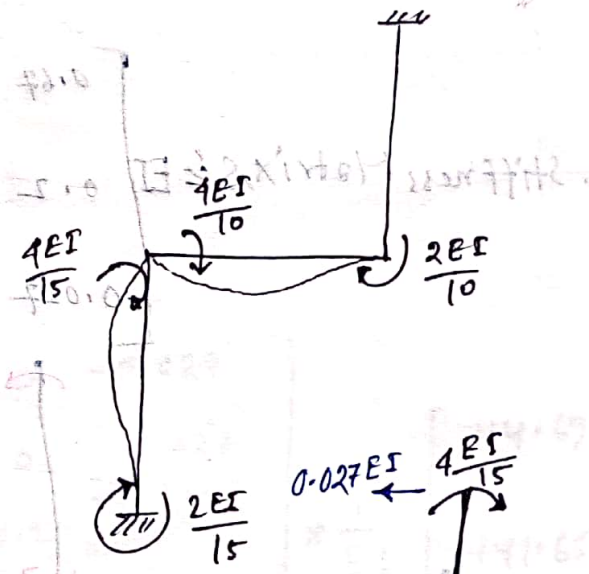 4EI
10
4EI
15
2EI
10
2EI
15
0.027EI
4EI
15